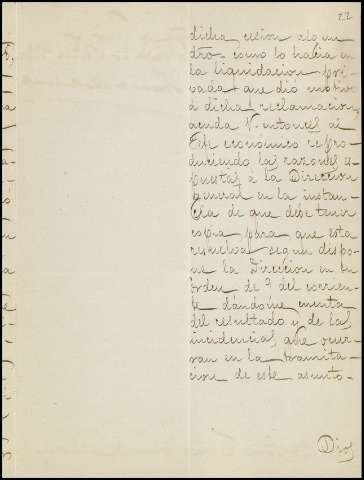 22
dicha cesion algun
dro. como lo habia en
la liquidacion pri
vada que dio motivo
á dicha reclamacion,
acuda V. entonces al
Jefe económico repro-
duciendo las razones es-
puestas á la Direccion
general en la instan-
cia de que debe tener
copia, para que esta
resuelva segun dispo-
ne la Direccion en su
órden de 2 del corrien-
te dándome cuenta
del resultado y de las
incidencias que ocur-
ran en la tramita-
cion de este asunto.
Dios